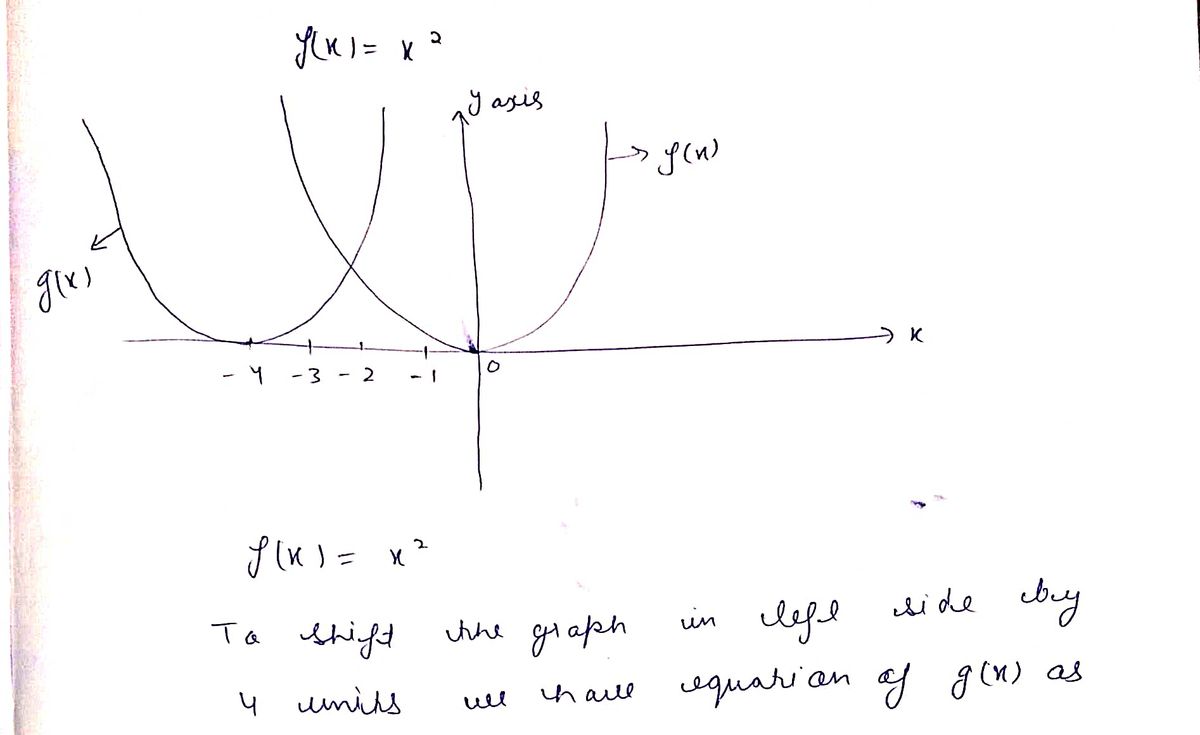 f(x) = x²
y axis
f(x)
g(x)
x
-4 -3 -2 -1 0
f(x) = x²
To shift the graph in left side by
4 units we have equation of g(x) as